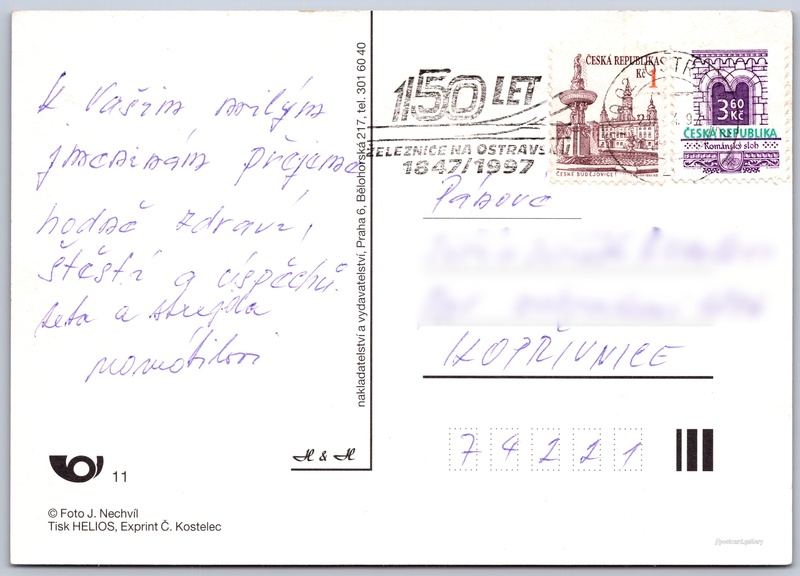 K Vašim milým
jmeninám přejeme
hodně zdraví,
štěstí a úspěchů.
teta a strejda
nakladatelství a vydavatelství, Praha 6, Bělohorská 217, tel. 301 60 40
150 LET
ŽELEZNICE NA OSTRAVSKU
1847/1997
ČESKÁ REPUBLIKA
Kč 1
ČESKÉ BUDĚJOVICE
3 60
Kč
ČESKÁ REPUBLIKA
Románský sloh
KOPŘIVNICE
74221
H & H
11
© Foto J. Nechvíl
Tisk HELIOS, Exprint Č. Kostelec